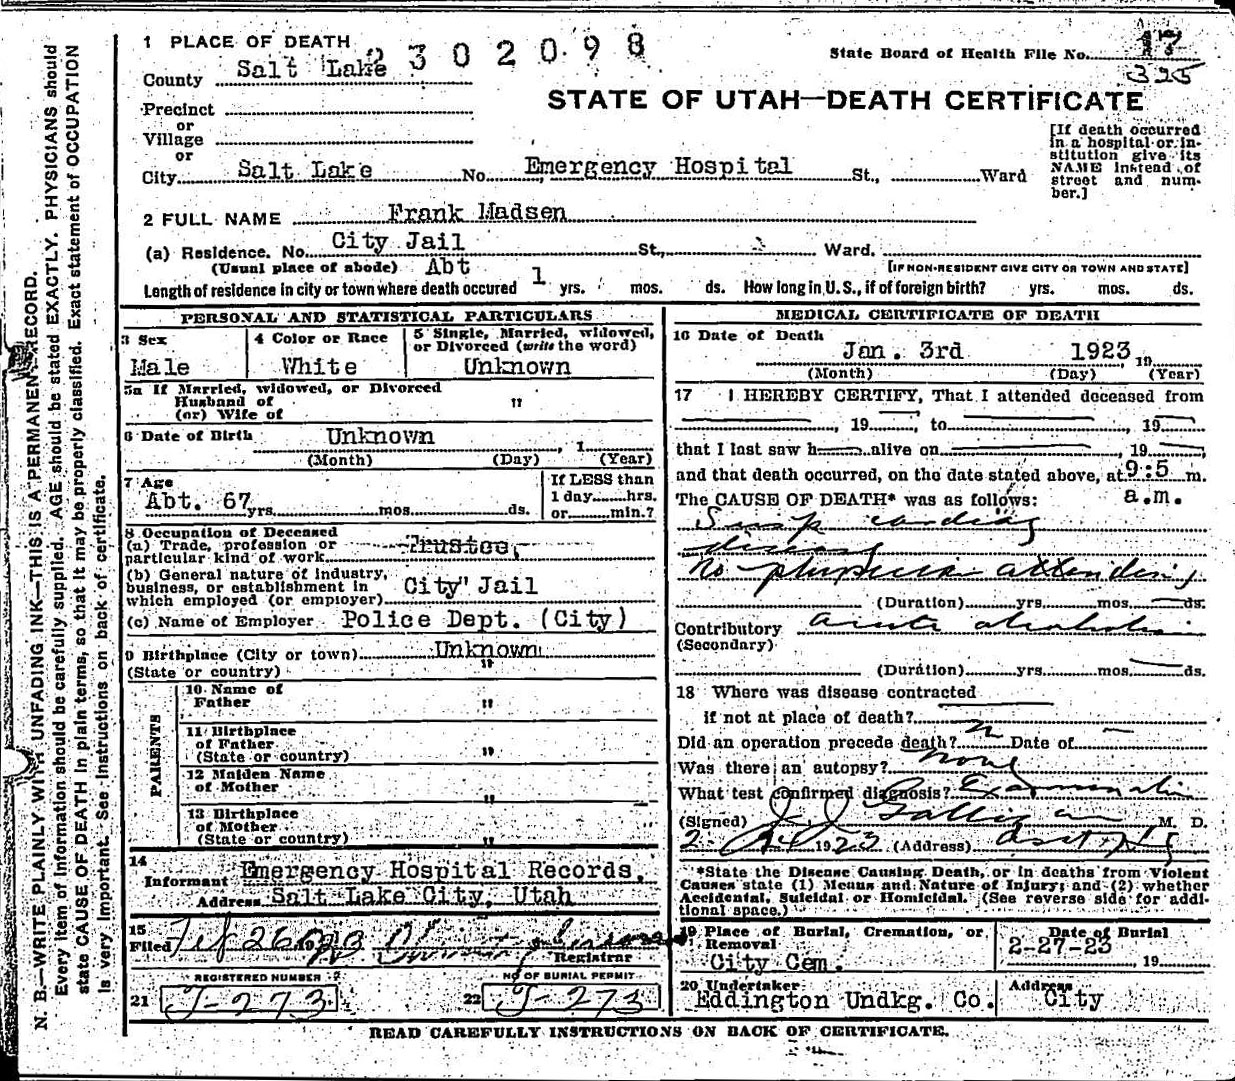 1 PLACE OF DEATH
2302098
State Board of Health File No. 17
325
County Salt Lake
STATE OF UTAH—DEATH CERTIFICATE
Precinct
or
Village
or
City Salt Lake No. Emergency Hospital St., Ward
[If death occurred in a hospital or institution give its NAME instead of street and number.]
2 FULL NAME Frank Madsen
(a) Residence. No. City Jail St., Ward.
(Usual place of abode) Abt [IF NON-RESIDENT GIVE CITY OR TOWN AND STATE]
Length of residence in city or town where death occured 1 yrs. mos. ds. How long in U.S., if of foreign birth? yrs. mos. ds.
PERSONAL AND STATISTICAL PARTICULARS
3 Sex
Male
4 Color or Race
White
5 Single, Married, widowed, or Divorced (write the word)
Unknown
5a If Married, widowed, or Divorced
Husband of "
(or) Wife of
6 Date of Birth Unknown , 1
(Month) (Day) (Year)
7 Age
Abt. 67 yrs. mos. ds.
If LESS than
1 day hrs.
or min.?
8 Occupation of Deceased
(a) Trade, profession or
particular kind of work Trustee,
(b) General nature of industry,
business, or establishment in City Jail
which employed (or employer)
(c) Name of Employer Police Dept. (City)
9 Birthplace (City or town) Unknown
(State or country) "
PARENTS
10 Name of
Father "
11 Birthplace
of Father "
(State or country)
12 Maiden Name
of Mother "
13 Birthplace
of Mother
(State or country) "
14
Informant Emergency Hospital Records,
Address Salt Lake City, Utah
15
Filed Feb 26 1923
Registrar
REGISTERED NUMBER
21 J-273
NO OF BURIAL PERMIT
22 J-273
MEDICAL CERTIFICATE OF DEATH
16 Date of Death
Jan. 3rd 1923, 19
(Month) (Day) (Year)
17 I HEREBY CERTIFY, That I attended deceased from
, 19 , to , 19
that I last saw h alive on , 19
and that death occurred, on the date stated above, at 9:5 m.
The CAUSE OF DEATH* was as follows: a.m.
cardiac
disease
No physician attending
(Duration) yrs. mos. ds.
Contributory acute alcoholism
(Secondary)
(Duration) yrs. mos. ds.
18 Where was disease contracted
if not at place of death?
Did an operation precede death? Date of
Was there an autopsy? none
What test confirmed diagnosis? Examination
(Signed) M. D.
1923 (Address)
*State the Disease Causing Death, or in deaths from Violent
Causes state (1) Means and Nature of Injury; and (2) whether
Accidental, Suicidal or Homicidal. (See reverse side for addi-
tional space.)
19 Place of Burial, Cremation, or
Removal
City Cem.
Date of Burial
2-27-23
, 19
20 Undertaker
Eddington Undkg. Co.
Address
City
READ CAREFULLY INSTRUCTIONS ON BACK OF CERTIFICATE.
N. B.—WRITE PLAINLY WITH UNFADING INK—THIS IS A PERMANENT RECORD.
Every item of information should be carefully supplied. AGE should be stated EXACTLY. PHYSICIANS should
state CAUSE OF DEATH in plain terms, so that it may be properly classified. Exact statement of OCCUPATION
is very important. See Instructions on back of certificate.